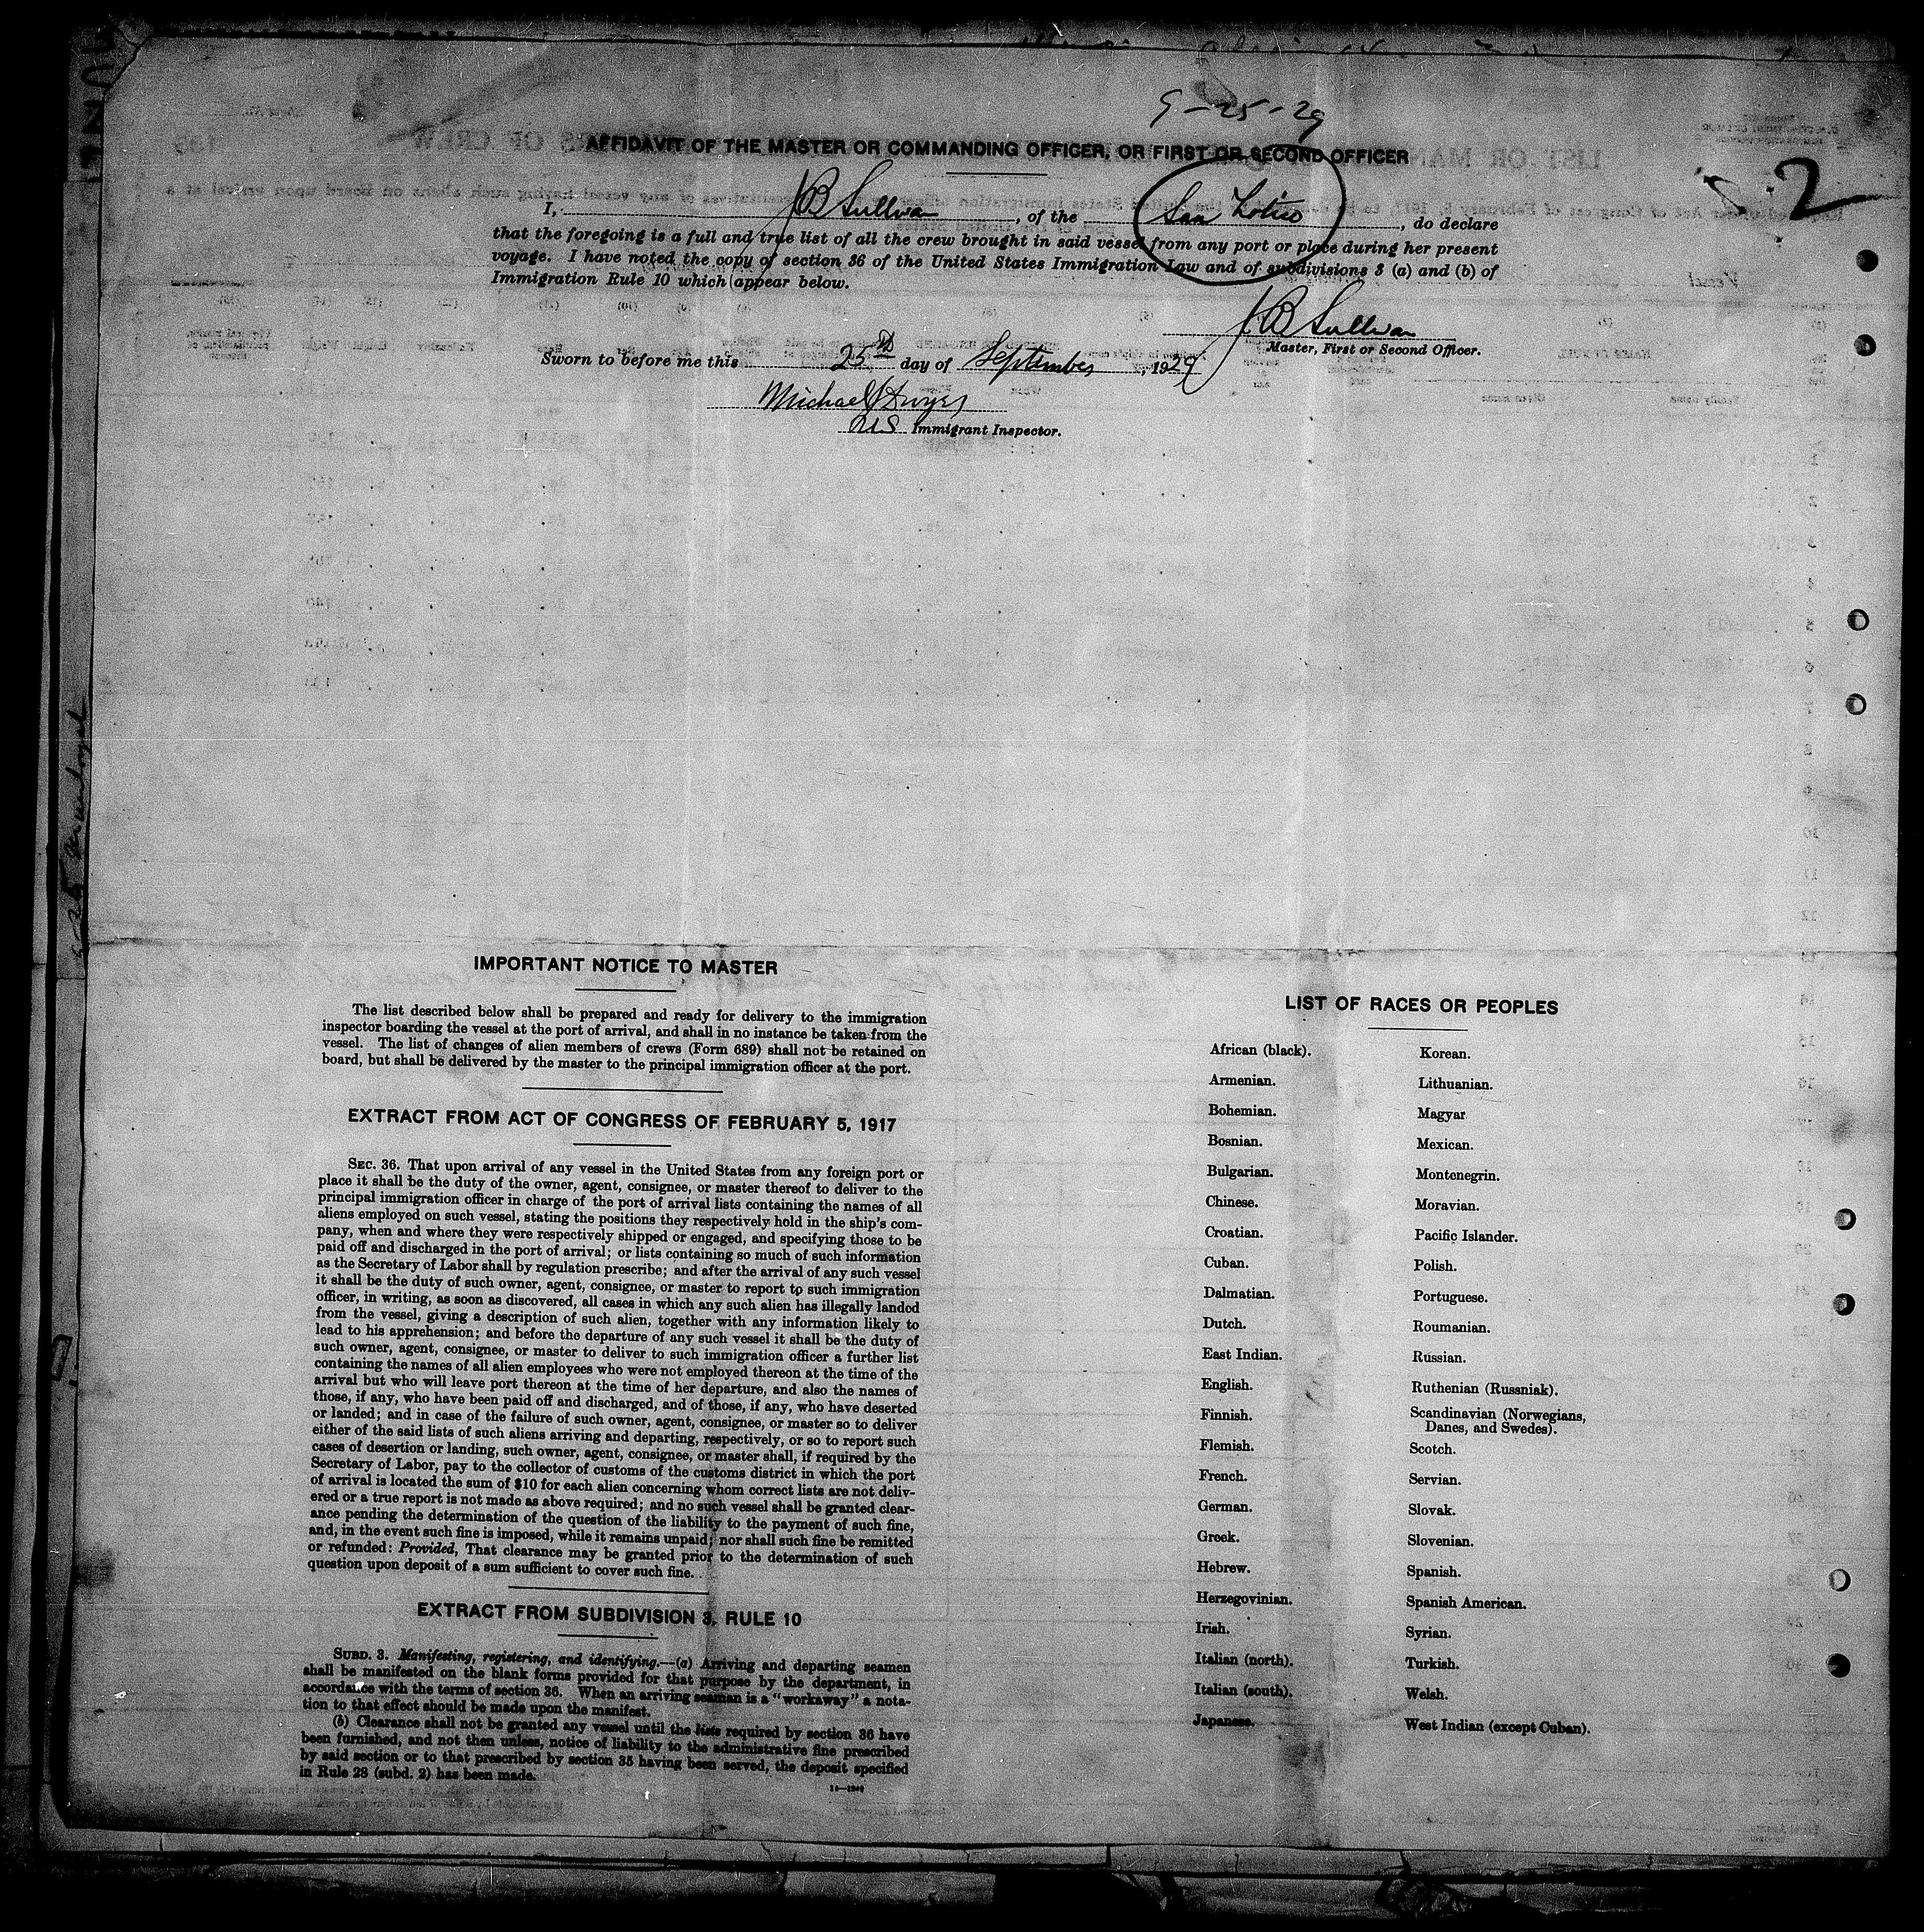 9-25-29
AFFIDAVIT OF THE MASTER OR COMMANDING OFFICER, OR FIRST OR SECOND OFFICER
2
I, J B Sullivan, of the San, do declare
that the foregoing is a full and true list of all the crew brought in said vessel from any port or place during her present
voyage. I have noted the copy of section 36 of the United States Immigration Law and of subdivisions 3 (a) and (b) of
Immigration Rule 10 which appear below.
J B Sullivan
Master, First or Second Officer.
Sworn to before me this 25th day of September, 1929
Michael J Dwyer
U S Immigrant Inspector.
IMPORTANT NOTICE TO MASTER
The list described below shall be prepared and ready for delivery to the immigration
inspector boarding the vessel at the port of arrival, and shall in no instance be taken from the
vessel. The list of changes of alien members of crews (Form 689) shall not be retained on
board, but shall be delivered by the master to the principal immigration officer at the port.
EXTRACT FROM ACT OF CONGRESS OF FEBRUARY 5, 1917
SEC. 36. That upon arrival of any vessel in the United States from any foreign port or
place it shall be the duty of the owner, agent, consignee, or master thereof to deliver to the
principal immigration officer in charge of the port of arrival lists containing the names of all
aliens employed on such vessel, stating the positions they respectively hold in the ship's com-
pany, when and where they were respectively shipped or engaged, and specifying those to be
paid off and discharged in the port of arrival; or lists containing so much of such information
as the Secretary of Labor shall by regulation prescribe; and after the arrival of any such vessel
it shall be the duty of such owner, agent, consignee, or master to report to such immigration
officer, in writing, as soon as discovered, all cases in which any such alien has illegally landed
from the vessel, giving a description of such alien, together with any information likely to
lead to his apprehension; and before the departure of any such vessel it shall be the duty of
such owner, agent, consignee, or master to deliver to such immigration officer a further list
containing the names of all alien employees who were not employed thereon at the time of the
arrival but who will leave port thereon at the time of her departure, and also the names of
those, if any, who have been paid off and discharged, and of those, if any, who have deserted
or landed; and in case of the failure of such owner, agent, consignee, or master so to deliver
either of the said lists of such aliens arriving and departing, respectively, or so to report such
cases of desertion or landing, such owner, agent, consignee, or master shall, if required by the
Secretary of Labor, pay to the collector of customs of the customs district in which the port
of arrival is located the sum of $10 for each alien concerning whom correct lists are not deliv-
ered or a true report is not made as above required; and no such vessel shall be granted clear-
ance pending the determination of the question of the liability to the payment of such fine,
and, in the event such fine is imposed, while it remains unpaid; nor shall such fine be remitted
or refunded: Provided, That clearance may be granted prior to the determination of such
question upon deposit of a sum sufficient to cover such fine.
EXTRACT FROM SUBDIVISION 3, RULE 10
SUBD. 3. Manifesting, registering, and identifying.—(a) Arriving and departing seamen
shall be manifested on the blank forms provided for that purpose by the department, in
accordance with the terms of section 36. When an arriving seaman is a "workaway" a nota-
tion to that effect should be made upon the manifest.
(b) Clearance shall not be granted any vessel until the lists required by section 36 have
been furnished, and not then unless, notice of liability to the administrative fine prescribed
by said section or to that prescribed by section 35 having been served, the deposit specified
in Rule 28 (subd. 2) has been made.
LIST OF RACES OR PEOPLES
African (black).
Armenian.
Bohemian.
Bosnian.
Bulgarian.
Chinese.
Croatian.
Cuban.
Dalmatian.
Dutch.
East Indian.
English.
Finnish.
Flemish.
French.
German.
Greek.
Hebrew.
Herzegovinian.
Irish.
Italian (north).
Italian (south).
Japanese.
Korean.
Lithuanian.
Magyar
Mexican.
Montenegrin.
Moravian.
Pacific Islander.
Polish.
Portuguese.
Roumanian.
Russian.
Ruthenian (Russniak).
Scandinavian (Norwegians,
Danes, and Swedes).
Scotch.
Servian.
Slovak.
Slovenian.
Spanish.
Spanish American.
Syrian.
Turkish.
Welsh.
West Indian (except Cuban).